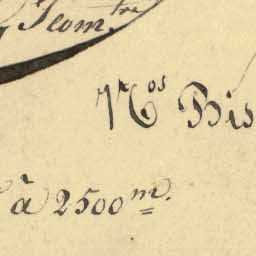 Géom.tre
N.os Bis
à 2500m.